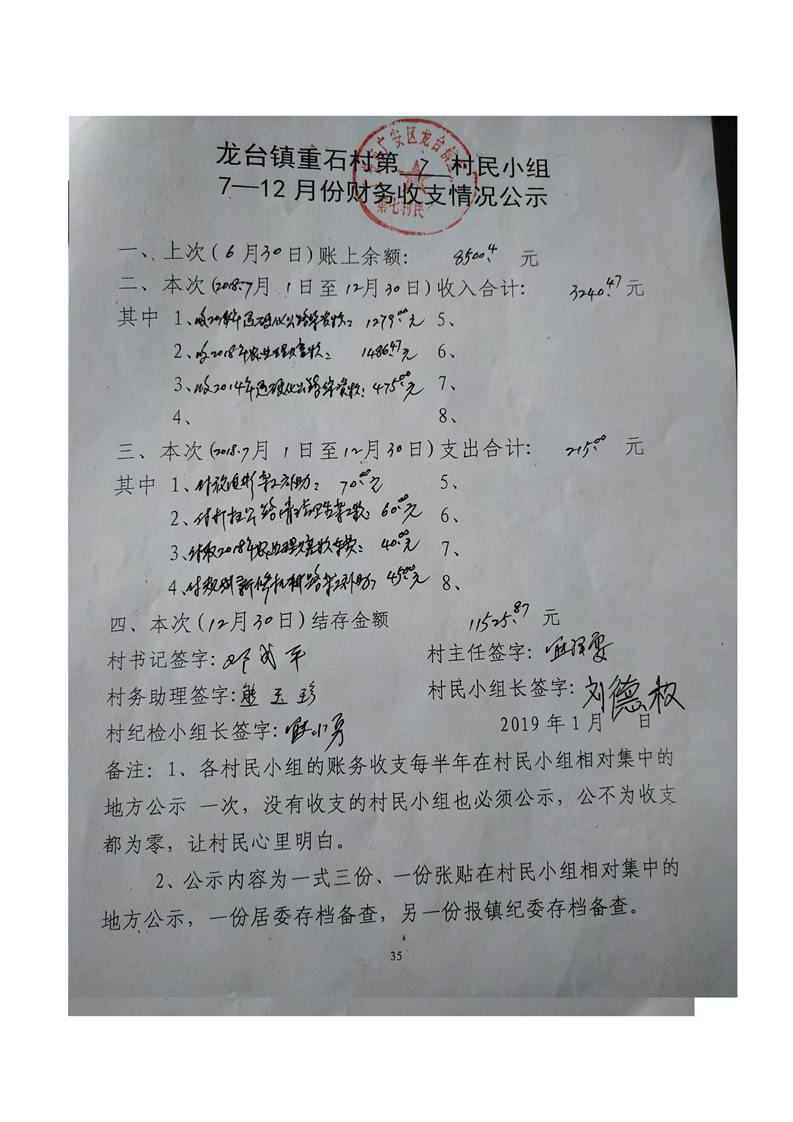 龙台镇重石村第 7 村民小组
7—12月份财务收支情况公示
广安区龙台镇
第七村民
一、上次(6月30日)账上余额: 8500.4 元
二、本次(2018.7月 1日至12月30日)收入合计: 3240.47元
其中 1、收2018年 1279.00元 5、
2、收2018年 1486.47元 6、
3、收2014年 475.00元 7、
4、 8、
三、本次(2018.7月 1日至12月30日)支出合计: 215.00 元
其中 1、付 补助: 70.00元 5、
2、付 公路 60.00元 6、
3、付收2018年 40.00元 7、
4、付 补助, 45.00元 8、
四、本次(12月30日)结存金额 11525.87 元
村书记签字: 村主任签字:
村务助理签字:熊玉珍 村民小组长签字:刘德权
村纪检小组长签字: 2019年1月 日
备注: 1、各村民小组的账务收支每半年在村民小组相对集中的
地方公示 一次,没有收支的村民小组也必须公示,公不为收支
都为零,让村民心里明白。
2、公示内容为一式三份、一份张贴在村民小组相对集中的
地方公示,一份居委存档备查,另一份报镇纪委存档备查。
35